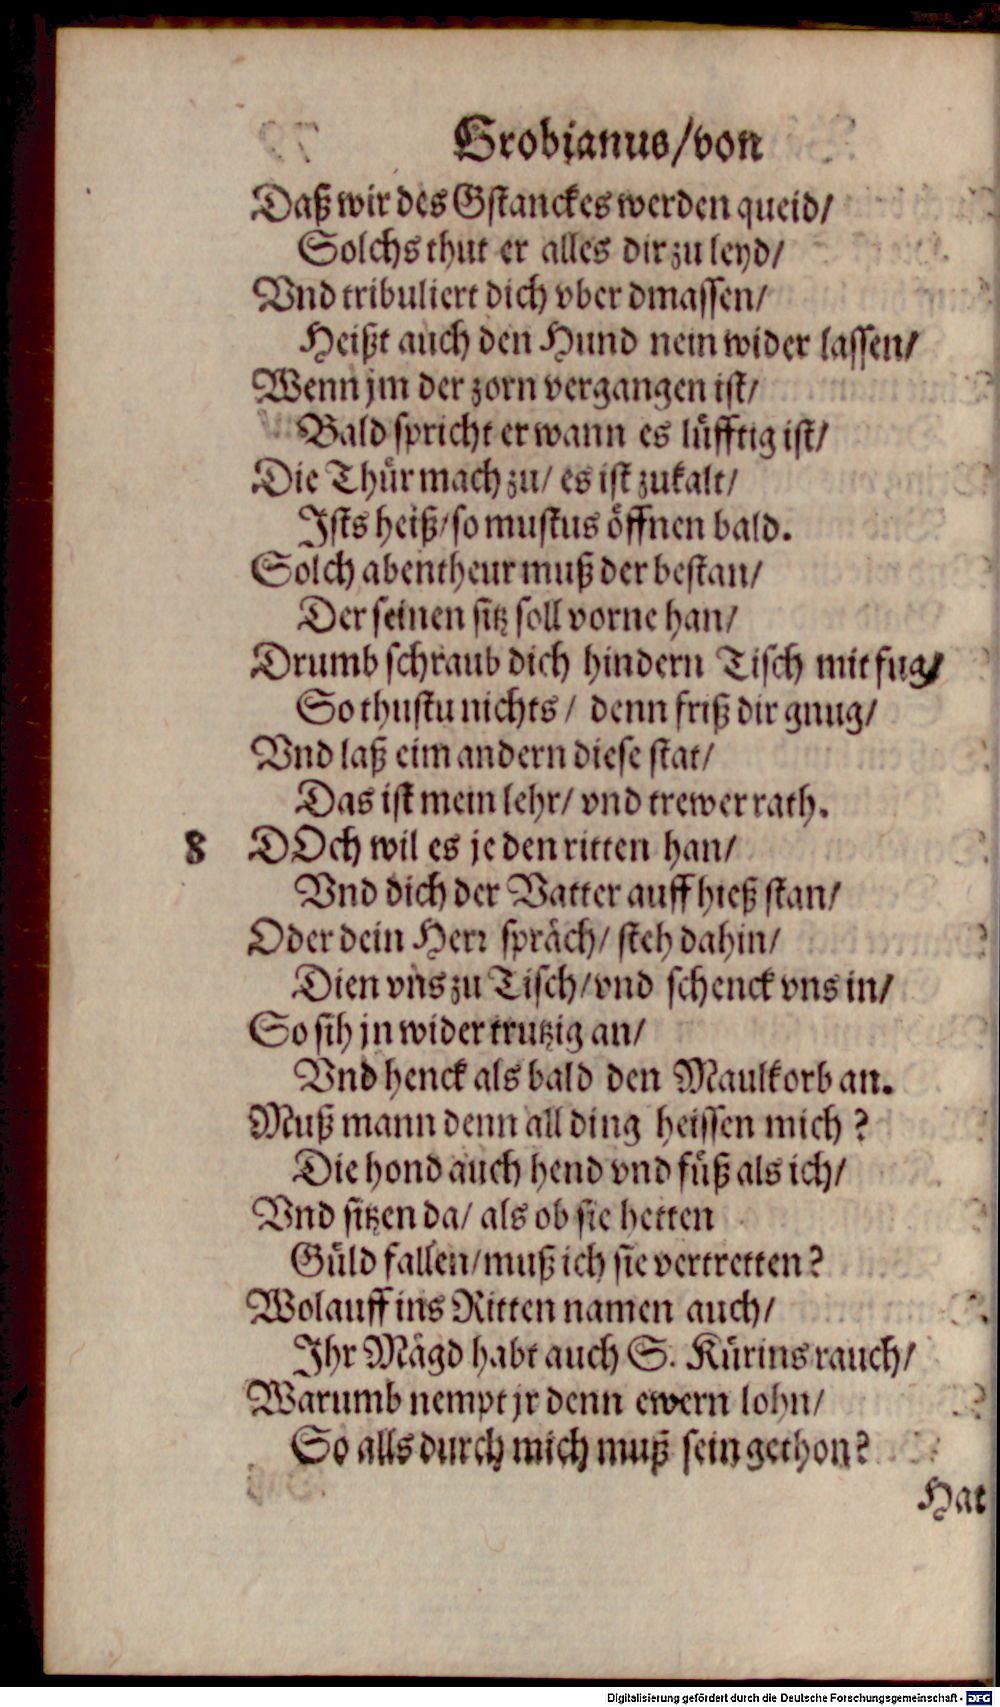 Grobianus/von
Daß wir des Gstanckes werden queid/
Solchs thut er alles dir zu leyd/
Vnd tribuliert dich vber dmassen/
Heißt auch den Hund nein wider lassen/
Wenn jm der zorn vergangen ist/
Bald spricht er wann es lüfftig ist/
Die Thür mach zu/ es ist zukalt/
Ists heiß/ so mustus öffnen bald.
Solch abentheur muß der bestan/
Der seinen sitz soll vorne han/
Drumb schraub dich hindern Tisch mit fug/
So thustu nichts/ denn friß dir gnug/
Vnd laß eim andern diese stat/
Das ist mein lehr/ vnd trewer rath.
8 DOch wil es je den ritten han/
Vnd dich der Vatter auff hieß stan/
Oder dein Herr spräch/ steh dahin/
Dien vns zu Tisch/ vnd schenck vns in/
So sih jn wider trutzig an/
Vnd henck als bald den Maulkorb an.
Muß mann denn all ding heissen mich?
Die hond auch hend vnd füß als ich/
Vnd sitzen da/ als ob sie hetten
Güld fallen/ muß ich sie vertretten?
Wolauff ins Ritten namen auch/
Ihr Mägd habt auch S. Kürins rauch/
Warumb nempt jr denn ewern lohn/
So alls durch mich muß sein gethon?
Hat
Digitalisierung gefördert durch die Deutsche Forschungsgemeinschaft - DFG